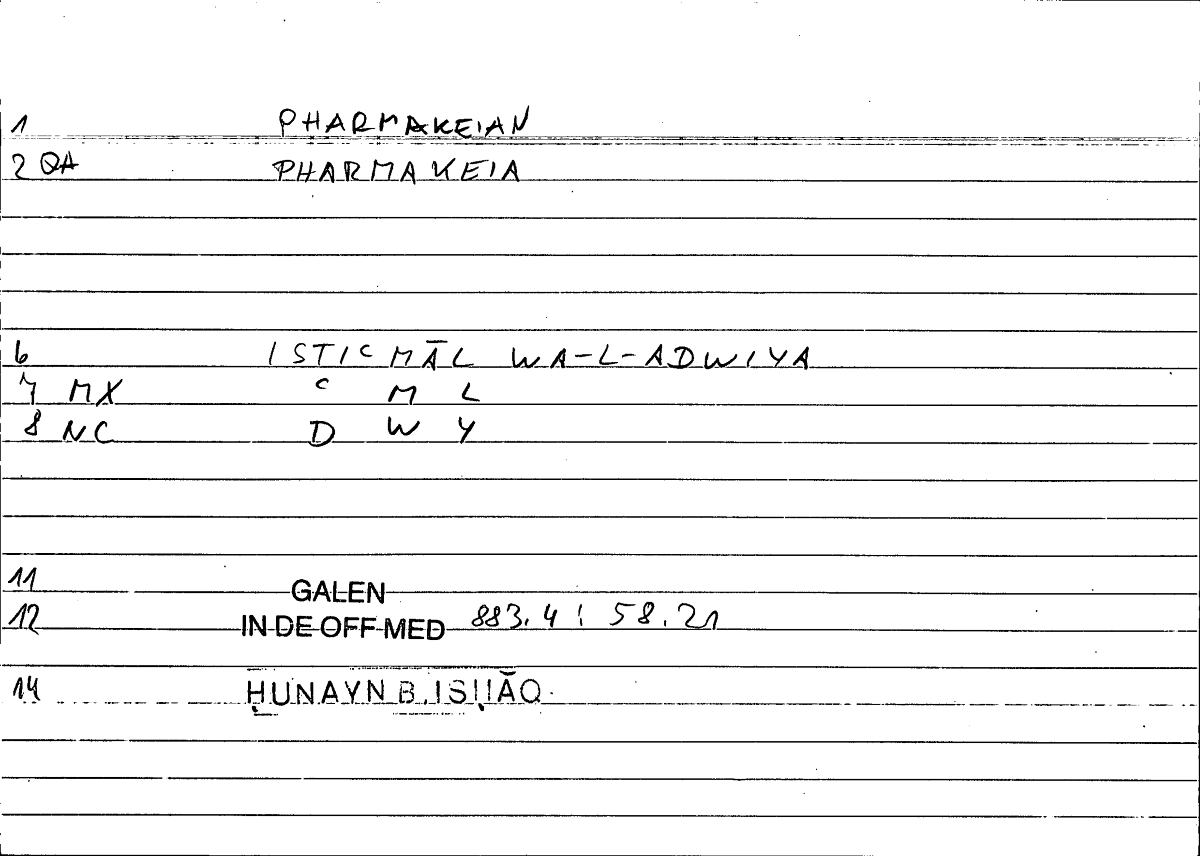 1 PHARMAKEIAN
2 QA PHARMAKEIA
6 ISTIC MĀL WA-L-ADWIYA
7 MX C M L
8 NC D W Y
11 GALEN
12 IN DE OFF MED 883.4 ; 58.21
14 ḤUNAYN B. ISḤĀQ